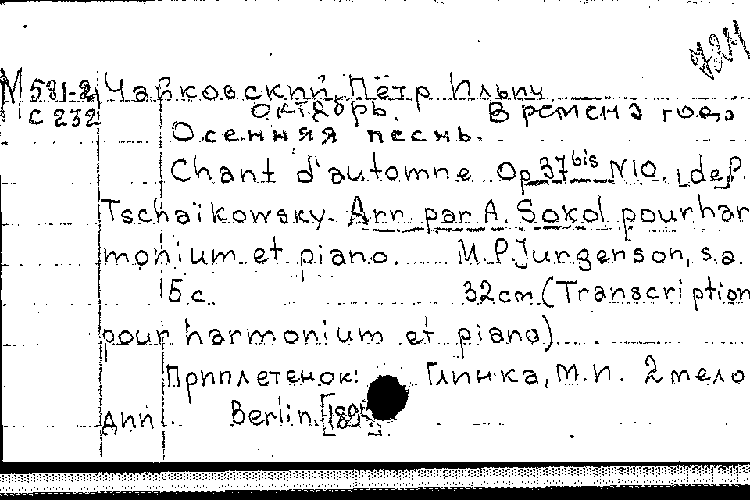 724
М 581-2 Чайковский, Пётр Ильич
С 232 Октябрь. Времена года
Осенняя песнь.
Chant d'automne Op 37 bis N10. [de] P.
Tschaïkowsky. Arr. par A. Sokol pour har
monium et piano. M. P. Jurgenson, s.a.
5 с. 32 cm. (Transcription
pour harmonium et piano)
Приплетенок: Глинка, М.И. 2 мело
дии. Berlin